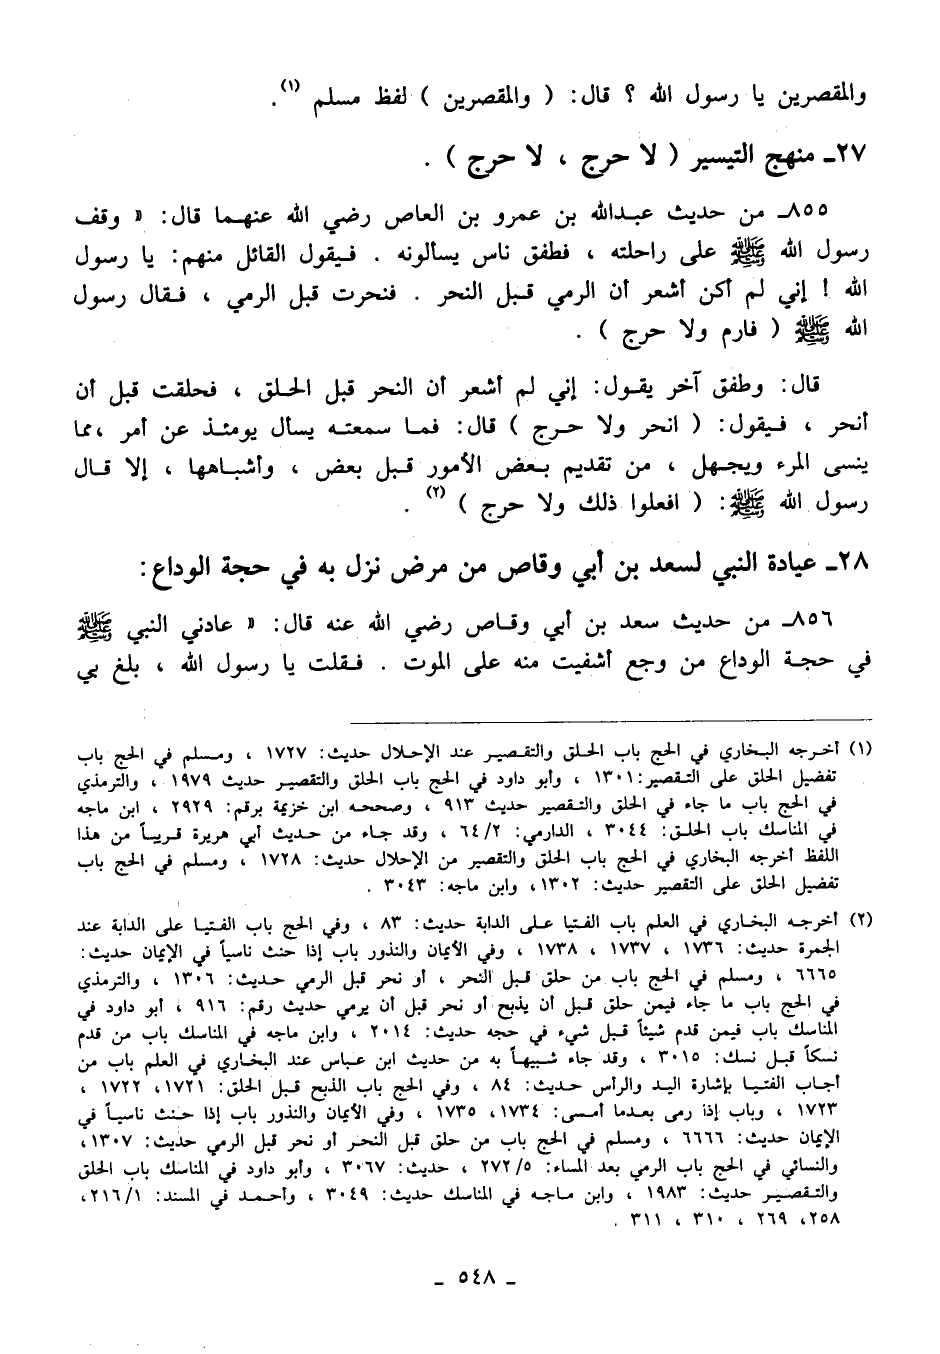 والمقصرين يا رسول الله ؟ قال: ( والمقصرين ) لفظ مسلم (١).
٢٧ـ منهج التيسير ( لا حرج ، لا حرج ) .
٨٥٥ـ من حديث عبدالله بن عمرو بن العاص رضي الله عنهما قال: « وقف
رسول الله ﷺ على راحلته ، فطفق ناس يسألونه . فيقول القائل منهم: يا رسول
الله ! إني لم أكن أشعر أن الرمي قبل النحر . فنحرت قبل الرمي ، فقال رسول
الله ﷺ ( فارم ولا حرج ) .
قال: وطفق آخر يقول: إني لم أشعر أن النحر قبل الحلق ، فحلقت قبل أن
أنحر ، فيقول: ( انحر ولا حرج ) قال: فما سمعته يسأل يومئذ عن أمر ،مما
ينسى المرء ويجهل ، من تقديم بعض الأمور قبل بعض ، وأشباهها ، إلا قال
رسول الله ﷺ: ( افعلوا ذلك ولا حرج ) (٢) .
٢٨ـ عيادة النبي لسعد بن أبي وقاص من مرض نزل به في حجة الوداع:
٨٥٦ـ من حديث سعد بن أبي وقاص رضي الله عنه قال: « عادني النبي ﷺ
في حجة الوداع من وجع أشفيت منه على الموت . فقلت يا رسول الله ، بلغ بي
(١) أخرجه البخاري في الحج باب الحلق والتقصير عند الإحلال حديث: ١٧٢٧ ، ومسلم في الحج باب
تفضيل الحلق على التقصير:١٣٠١ ، وأبو داود في الحج باب الحلق والتقصير حديث ١٩٧٩ ، والترمذي
في الحج باب ما جاء في الحلق والتقصير حديث ٩١٣ ، وصححه ابن خزيمة برقم: ٢٩٢٩ ، ابن ماجه
في المناسك باب الحلق: ٣٠٤٤ ، الدارمي: ٦٤/٢ ، وقد جاء من حديث أبي هريرة قريباً من هذا
اللفظ أخرجه البخاري في الحج باب الحلق والتقصير من الإحلال حديث: ١٧٢٨ ، ومسلم في الحج باب
تفضيل الحلق على التقصير حديث: ١٣٠٢، وابن ماجه: ٣٠٤٣ .
(٢) أخرجه البخاري في العلم باب الفتيا على الدابة حديث: ٨٣ ، وفي الحج باب الفتيا على الدابة عند
الجمرة حديث: ١٧٣٦ ، ١٧٣٧ ، ١٧٣٨ ، وفي الأيمان والنذور باب إذا حنث ناسياً في الإيمان حديث:
٦٦٦٥ ، ومسلم في الحج باب من حلق قبل النحر ، أو نحر قبل الرمي حديث: ١٣٠٦ ، والترمذي
في الحج باب ما جاء فيمن حلق قبل أن يذبح أو نحر قبل أن يرمي حديث رقم: ٩١٦ ، أبو داود في
المناسك باب فيمن قدم شيئاً قبل شيء في حجه حديث: ٢٠١٤ ، وابن ماجه في المناسك باب من قدم
نسكاً قبل نسك: ٣٠١٥ ، وقد جاء شبيهاً به من حديث ابن عباس عند البخاري في العلم باب من
أجاب الفتيا بإشارة اليد والرأس حديث: ٨٤ ، وفي الحج باب الذبح قبل الحلق: ١٧٢١، ١٧٢٢ ،
١٧٢٣ ، وباب إذا رمى بعدما أمسى: ١٧٣٤، ١٧٣٥ ، وفي الأيمان والنذور باب إذا حنث ناسياً في
الإيمان حديث: ٦٦٦٦ ، ومسلم في الحج باب من حلق قبل النحر أو نحر قبل الرمي حديث: ١٣٠٧،
والنسائي في الحج باب الرمي بعد المساء: ٢٧٢/٥ ، حديث: ٣٠٦٧ ، وأبو داود في المناسك باب الحلق
والتقصير حديث: ١٩٨٣ ، وابن ماجه في المناسك حديث: ٣٠٤٩ ، وأحمد في المسند: ٢١٦/١،
٢٥٨، ٢٦٩ ، ٣١٠ ، ٣١١ .
ـ ٥٤٨ ـ